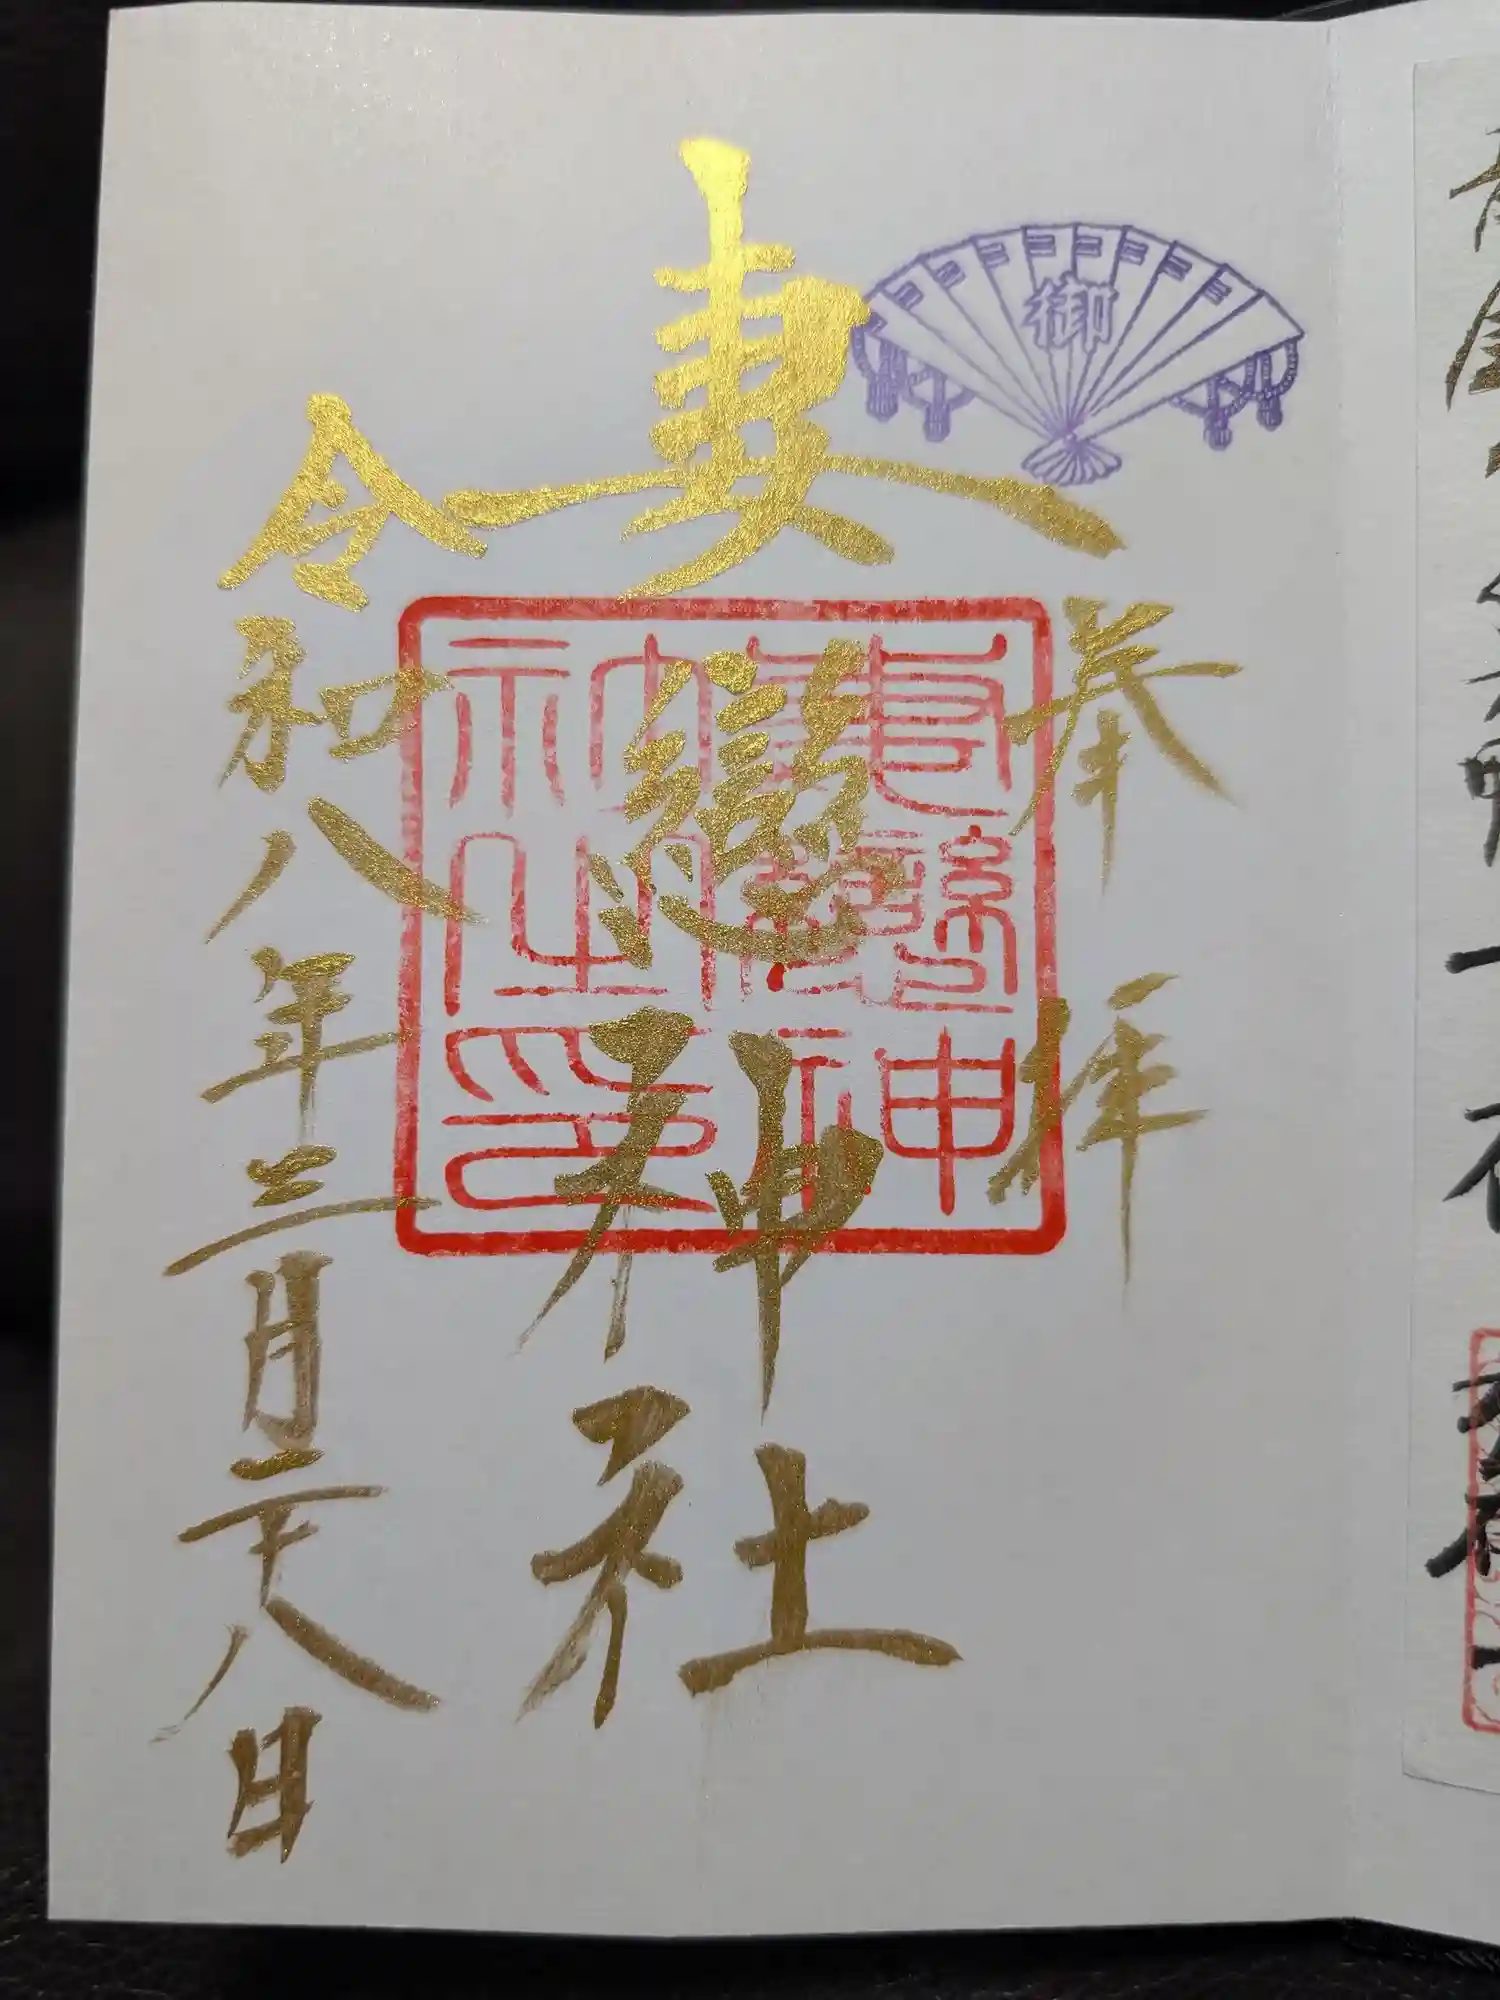 御
奉拝
妻戀神社
妻戀神社之印
令和八年三月二十八日